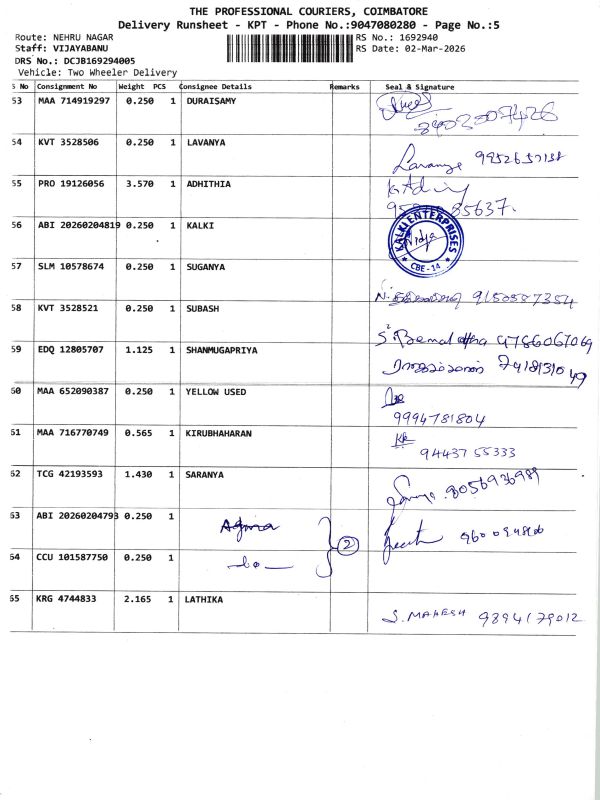 THE PROFESSIONAL COURIERS, COIMBATORE
Delivery Runsheet - KPT - Phone No.:9047080280 - Page No.:5
Route: NEHRU NAGAR
RS No.: 1692940
Staff: VIJAYABANU
RS Date: 02-Mar-2026
DRS No.: DCJB169294005
Vehicle: Two Wheeler Delivery
S No Consignment No Weight PCS Consignee Details Remarks Seal & Signature
53 MAA 714919297 0.250 1 DURAISAMY
54 KVT 3528506 0.250 1 LAVANYA
Lavanya
55 PRO 19126056 3.570 1 ADHITHIA
85637.
56 ABI 20260204819 0.250 1 KALKI
KALKI ENTERPRISES
Vidja
CBE-14
57 SLM 10578674 0.250 1 SUGANYA
9150587354
58 KVT 3528521 0.250 1 SUBASH
59 EDQ 12805707 1.125 1 SHANMUGAPRIYA
60 MAA 652090387 0.250 1 YELLOW USED
9994781804
61 MAA 716770749 0.565 1 KIRUBHAHARAN
9443755333
62 TCG 42193593 1.430 1 SARANYA
8056936989
63 ABI 20260204793 0.250 1
2
64 CCU 101587750 0.250 1
65 KRG 4744833 2.165 1 LATHIKA
S. MAHESH 9894179012